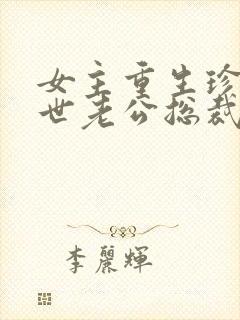 女主重生珍
世老公总裁
李麗輝